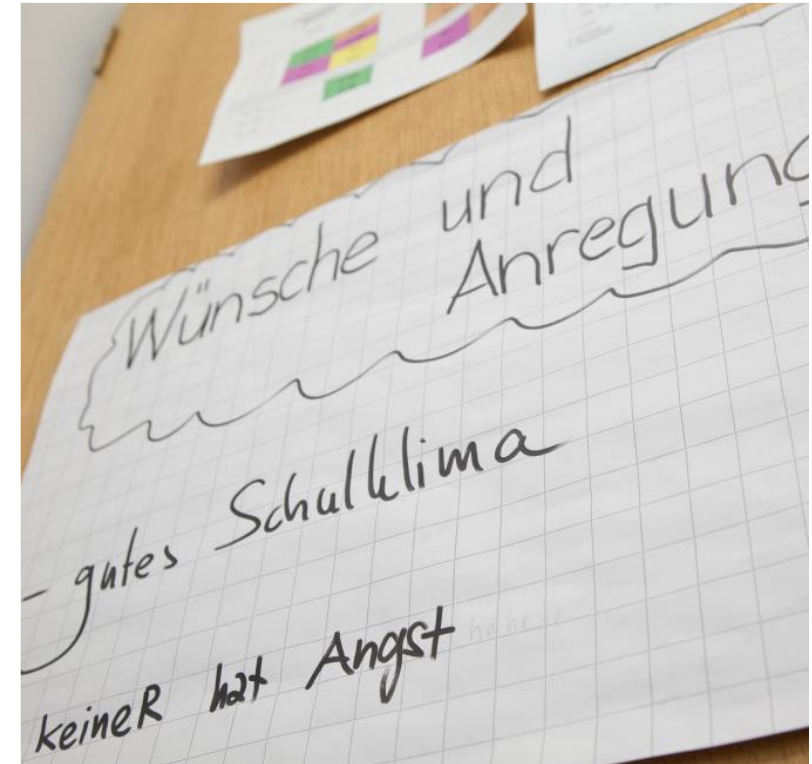 Wünsche und
Anregung
- gutes Schulklima
keineR hat Angst